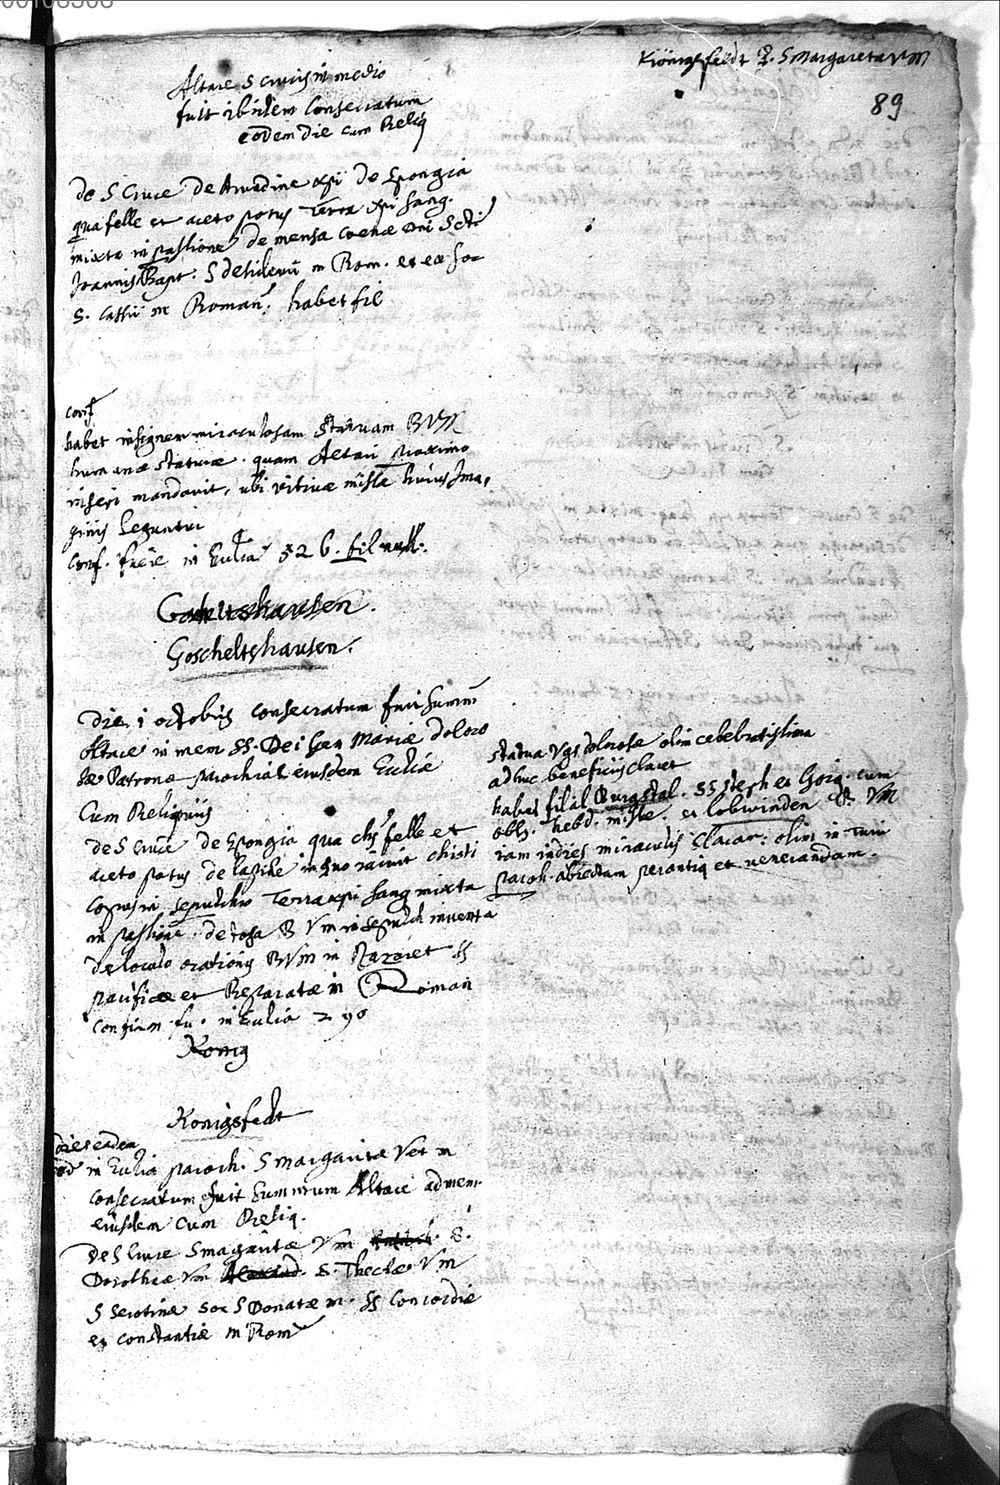 Königsfeldt S Margareta V M
89
Altare S Crucis in medio
fuit ibidem Consecratum
eodem die cum Reliq
de S Cruce De Arundine xpi De Spongia
qua felle et aceto potus Terra xpi sang.
mixta in passione De mensa Coenae Dni Scti
Joannis Bapt. S desiderii m Rom. et ex so-
S. Cassii m Roman. habet fil
conf
habet insignem miraculosam Statuam BVM
humanae staturae. quam Altari Maximo
inseri mandavit, ubi votivae missae huius Ima,
ginis leguntur
Conf. fuere in Ecclia 326. fil null.
Goscheltshausen.
Die 1 octobris consecratum fuit summ
Altare in mem SS. Dei Gen Mariae doloro
sae Patronae parochial eiusdem Eccliae
Cum Reliquiis
De S Cruce de Spongia qua chs felle et
aceto potus de lapide in quo iacuit christi
Corpus in sepulchro Terra xpi sang mixta
in passione. de toga B Vm in sepulch inventa
de loculo orationis BVM in Nazaret SS
pacificae et Reparatae m Roman
Confirm. fu. in Ecclia 290
Konig
statua Vgs dolorosae olim celebratissima
adhuc beneficiis claret
habet filial Burgstal. SS Steph et Georg. cum
obls. hebd. missae. et lobwinden B. VM
iam indies miraculis clarar: olim in
paroh. abiectam perantiq et venerandam.
Konigsfedt
Die eadem
in Ecclia paroch. S Margaritae Vet m
consecratum fuit Summum Altare ad mem
eiusdem Cum Reliq.
De S Cruce S Magaritae Vm S.
Dorotheae Vm S. Theclae Vm
S Serotinae soc S Donatae m. SS Concordiae
et constantiae m Rom